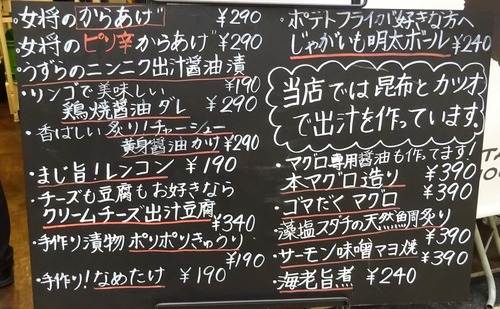 ・女将のからあげ ¥290
・女将のピリ辛からあげ ¥290
・うずらのニンニク出汁醤油漬
¥190
・リンゴで美味しい
鶏焼醤油ダレ ¥290
・香ばしい炙り!チャーシュー
黄身醤油かけ ¥290
・まじ旨!レンコン ¥190
・チーズも豆腐もお好きなら
クリームチーズ出汁豆腐
¥340
・手作り漬物 ポリポリきゅうり
¥190
・手作り!なめたけ ¥190
・ポテトフライが好きな方へ
じゃがいも明太ボール ¥240
当店では昆布とカツオ
で出汁を作っています。
・マグロ専用醤油も作ってます!
本マグロ造り ¥390
・ゴマだくマグロ ¥390
・藻塩スダチの天然鯛炙り
¥390
・サーモン味噌マヨ焼 ¥390
・海老旨煮 ¥240